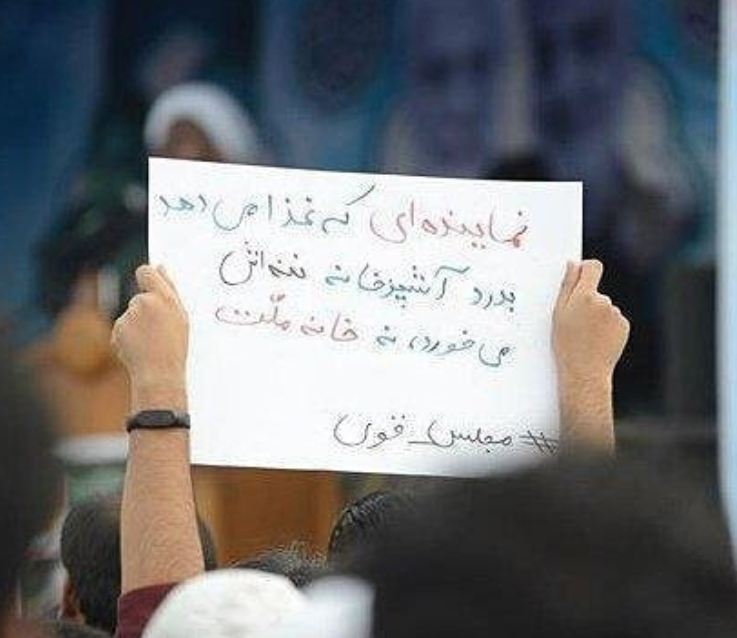 نماینده‌ای که غذا می دهد
بدرد آشپزخانه ننه‌اش
می خورد، نه خانه ملّت
# مجلس_قوی